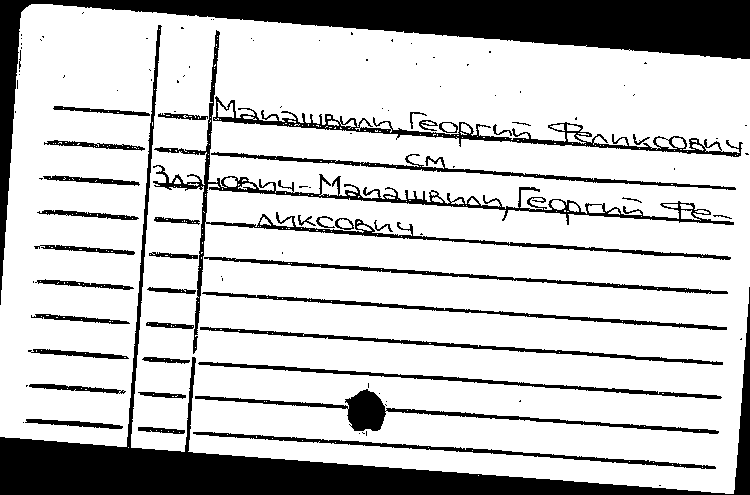 Маиашвили, Георгий Феликсович.
см.
Зданович-Маиашвили, Георгий Фе-
ликсович.